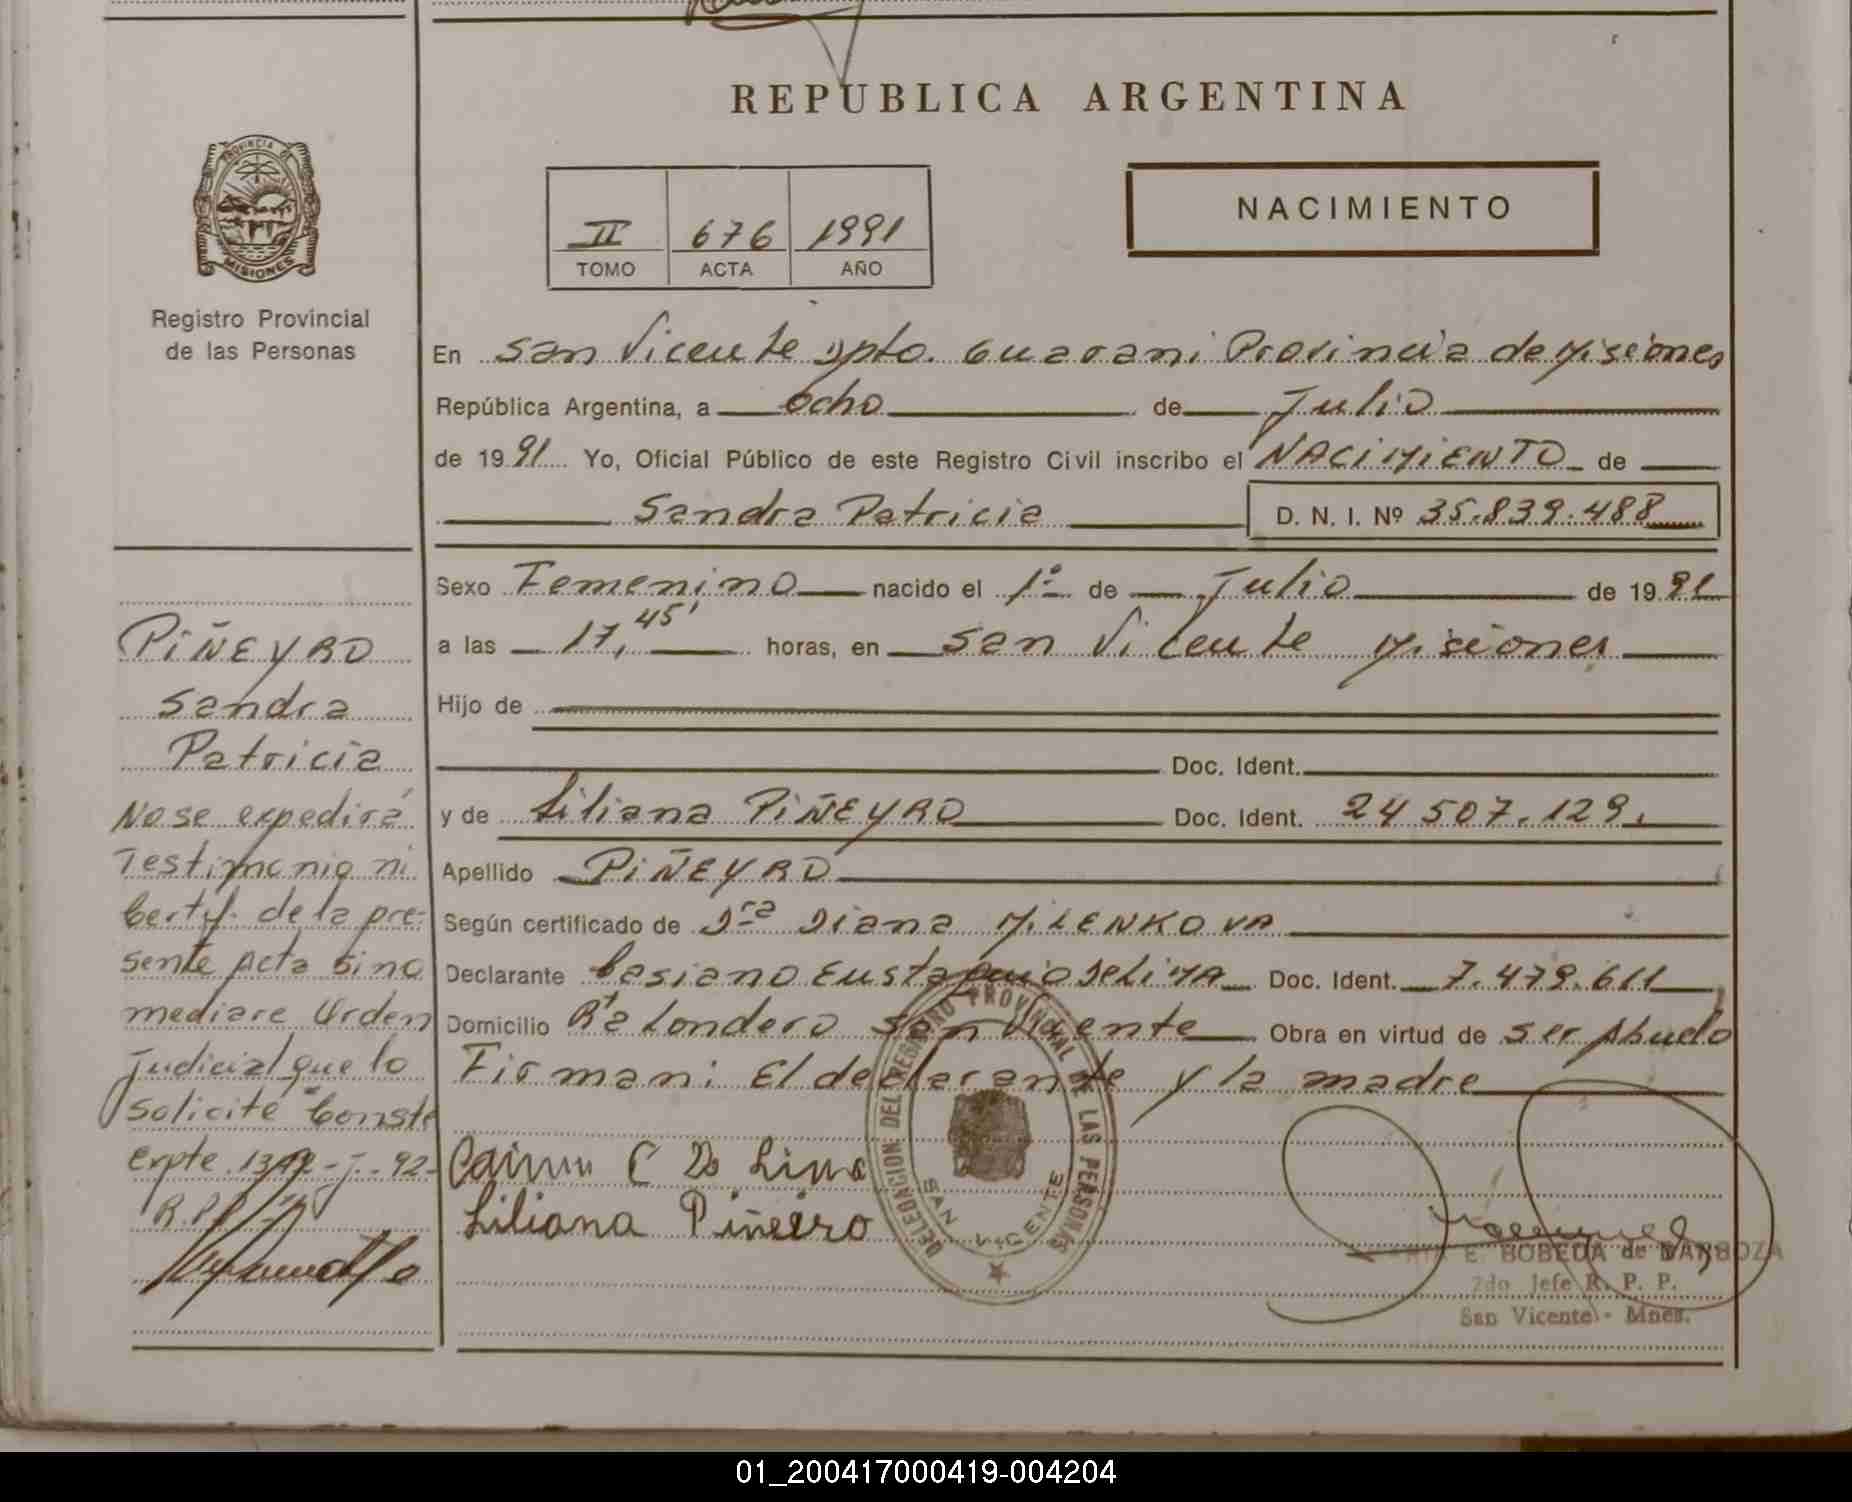 REPUBLICA ARGENTINA
PROVINCIA DE
MISIONES
Registro Provincial
de las Personas
II 676 1991
TOMO ACTA AÑO
NACIMIENTO
En San Vicente Dpto. Guarani Provincia de Misiones
República Argentina, a ocho de Julio
de 1991 Yo, Oficial Público de este Registro Civil inscribo el NACIMIENTO de
Sandra Patricia D. N. I. Nº 35.839.488
Sexo Femenino nacido el 1º de Julio de 1991
a las 17,45' horas, en San Vicente Misiones
Hijo de
Doc. Ident.
y de Liliana PIÑEYRO Doc. Ident. 24 507.129.
Apellido PIÑEYRO
Según certificado de Dra Diana MILENKOVA
Declarante Casiano Eustaquio DELIMA Doc. Ident. 7.479.611
Domicilio Rta Londero San Vicente Obra en virtud de ser Abuelo
Firman: El declarante y la madre
C De Lima
Liliana Piñeiro
PIÑEYRO
Sandra
Patricia
No se expedirá
Testimonio ni
Certif. de la pre-
sente Acta sino
mediare Orden
Judicial que lo
solicite Conste
Expte. - J - 92-
R.P.P.
DELEGACION DEL REGISTRO PROVINCIAL DE LAS PERSONAS
SAN VICENTE
E. BOBEDA de BARBOZA
2do Jefe R. P. P.
San Vicente - Mnes.
01_200417000419-004204